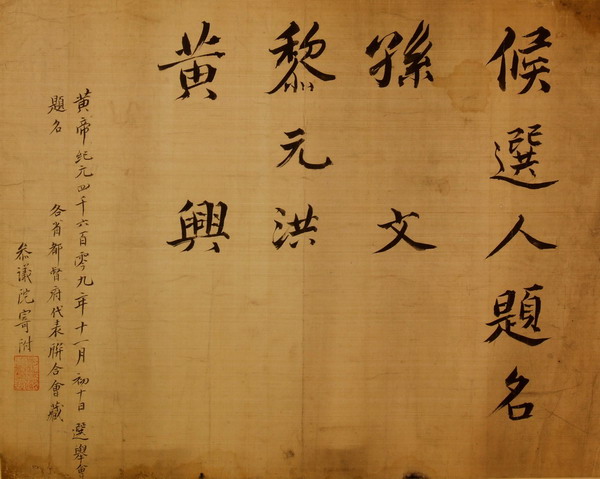 候選人題名
孫文
黎元洪
黃興
黃帝紀元四千六百零九年十一月初十日選舉會
題名　各省都督府代表聯合會藏
參議院寄附